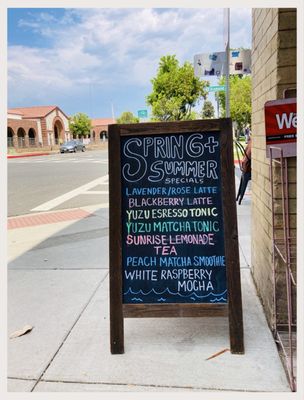 SPRING +
SUMMER
SPECIALS
LAVENDER/ROSE LATTE
BLACKBERRY LATTE
YUZU ESPRESSO TONIC
YUZU MATCHA TONIC
SUNRISE LEMONADE
TEA
PEACH MATCHA SMOOTHIE
WHITE RASPBERRY
MOCHA
We